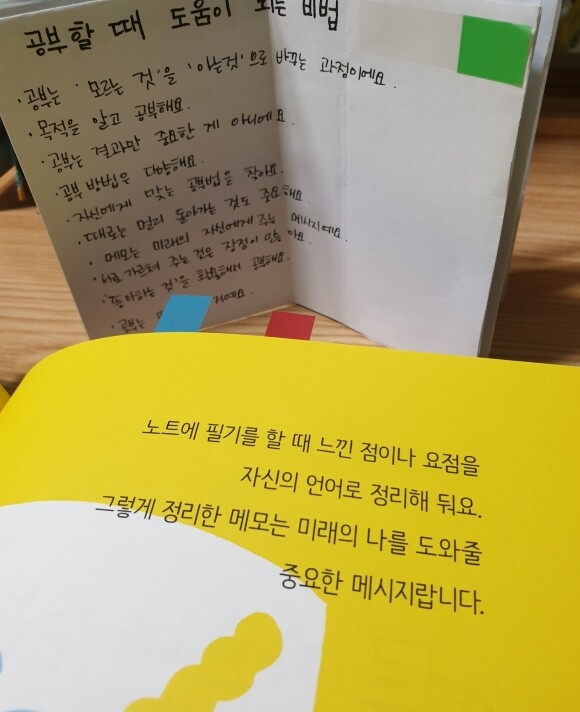 공부할 때 도움이 되는 비법
· 공부는 '모르는 것'을 '아는것'으로 바꾸는 과정이에요.
· 목적을 알고 공부해요.
· 공부는 결과만 중요한 게 아니에요.
· 공부 방법은 다양해요.
· 자신에게 맞는 공부법을 찾아요.
· 때로는 멀리 돌아가는 것도 중요해요.
· 메모는 미래의 자신에게 주는 메시지예요.
· 서로 가르쳐 주는 것은 장점이 많아요.
· '좋아하는 것'을 활용해서 공부해요.
· 공부는
노트에 필기를 할 때 느낀 점이나 요점을
자신의 언어로 정리해 둬요.
그렇게 정리한 메모는 미래의 나를 도와줄
중요한 메시지랍니다.